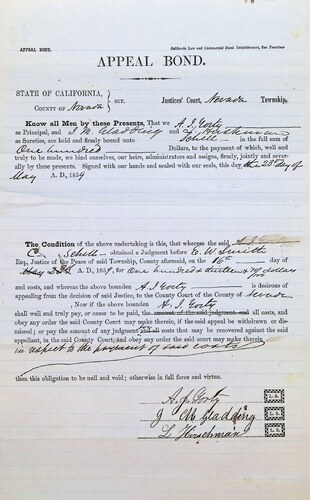 APPEAL BOND. California Law and Commercial Blank Establishment, San Francisco
APPEAL BOND.
STATE OF CALIFORNIA,
COUNTY OF Nevada } SCT. Justices' Court, Nevada Township.
Know all Men by these Presents, That we A. J. Gorly
as Principal, and J M Gladding and L. Hirschman
as Sureties, are held and firmly bound unto Schell in the full sum of
One hundred Dollars, to the payment of which, well and
truly to be made, we bind ourselves, our heirs, administrators and assigns, firmly, jointly and sever-
ally by these presents. Signed with our hands and sealed with our seals, this the 23d day of
May A. D., 1859
The Condition of the above undertaking is this, that whereas the said, A J
C Schell obtained a Judgment before E. W. Smith
Esq., Justice of the Peace of said Township, County aforesaid, on the 16th day of
May A. D., 1859, for One hundred & thirteen & dollars
and costs, and whereas the above bounden A. J Gorly is desirous of
appealing from the decision of said Justice, to the County Court of the County of Nevada
Now if the above bounden A. J. Gorly
shall well and truly pay, or cause to be paid, the amount of the said judgment and all costs, and
obey any order the said County Court may make therein, if the said appeal be withdrawn or dis-
missed; or pay the amount of any judgment and all costs that may be recovered against the said
appellant, in the said County Court, and obey any order the said court may make therein
in respect to the payment of said costs
then this obligation to be null and void; otherwise in full force and virtue.
A. J. Gorly L. S.
J M Gladding L. S.
L. Hirschman L. S.